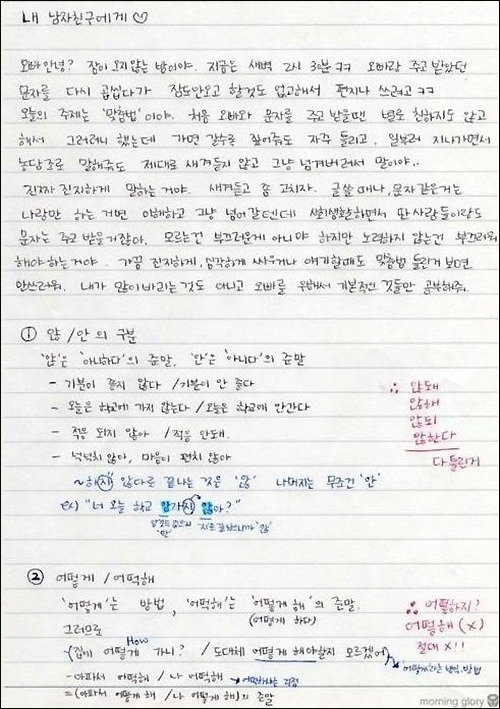 내 남자친구에게 ♡
오빠안녕? 잠이 오지않는 밤이야. 지금은 새벽 2시 30분ㅋㅋ 오빠랑 주고 받았던
문자를 다시 곱씹다가 잠도안오고 할것도 없고해서 편지나 쓰려고ㅋㅋ
오늘의 주제는 '맞춤법'이야. 처음 오빠와 문자를 주고 받을땐 별로 친하지도 않고
해서 그러려니 했는데 가면 갈수록 짚어줘도 자주 틀리고, 일부러 지나가면서
농담조로 말해줘도 제대로 새겨듣지 않고 그냥 넘겨버려서 말이야..
진짜 진지하게 말하는 거야. 새겨듣고 좀 고치자. 글쓸 때나, 문자같은거는
나랑만 하는 거면 이해하고 그냥 넘어갈텐데 사회생활하면서 딴사람들이랑도
문자는 주고 받을거잖아. 모르는건 부끄러운게 아니야 하지만 노력하지 않는건 부끄러워
해야하는거야. 가끔 진지하게, 심각하게 싸우거나 얘기할때도 맞춤법 틀린거 보면
안쓰러워. 내가 많이 바라는것도 아니고 오빠를 위해서 기본적인 것들만 공부해줘.
① 않/안 의 구분
'않'은 '아니하다'의 준말, '안'은 '아니다'의 준말
- 기분이 좋지 않다 / 기분이 안 좋다
- 오늘은 학교에 가지 않는다 / 오늘은 학교에 안간다
- 적응 되지 않아 / 적응 안돼.
- 넉넉치않아, 마음이 편치 않아.
∴ 않돼
않해
않되
않한다
다 틀린거
~하지 않다로 끝나는 것은 '않' 나머지는 무조건 '안'
ex) "너 오늘 학교 안가지 않아?"
'안'
'지'로 끝났으니까 '않'
② 어떻게 / 어떡해
'어떻게'는 방법, '어떡해'는 '어떻게 해'의 준말.
(어떻게 하다)
그러므로
How
- (집에 어떻게 가니? / 도대체 어떻게 해야할지 모르겠어)
어떻게라는 방식, 방법
- 아파서 어떡해 / 나 어떡해
→ 어떡하냐는 걱정
= (아파서 어떻게 해 / 나 어떻게 해)의 준말
∴ 어떻하지?
어떻해 (X)
절대 X!!
morning glory